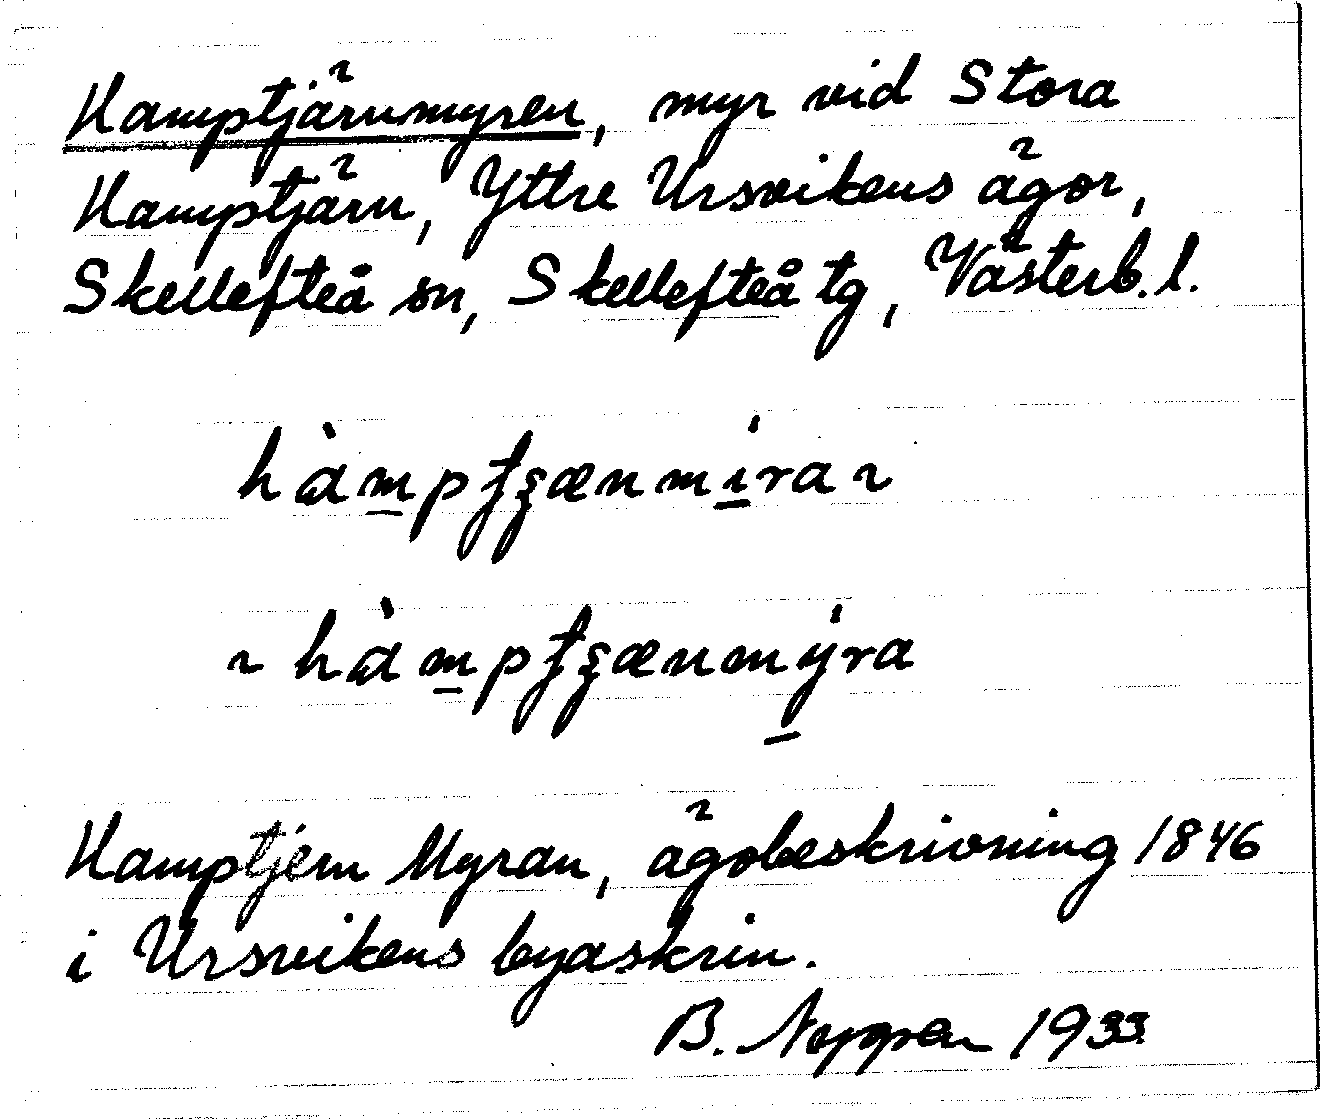 Hamptjärnmyren, myr vid Stora
Hamptjärn, Yttre Ursvikens ägor,
Skellefteå sn, Skellefteå tg, Västerb. l.
hàmpʈȿænmı̇ra ~
~ hàmpʈȿænmẏra
Hamptjern Myran, ägobeskrivning 1846
i Ursvikens byaskrin.
B. 1933